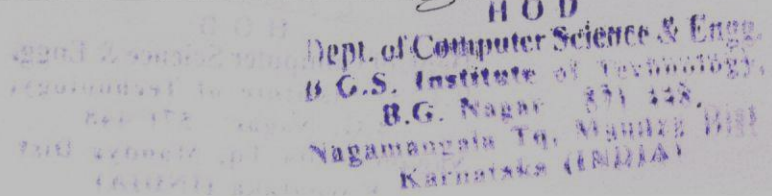 H O D
Dept. of Computer Science & Engg.
B G.S. Institute of Technology,
B.G. Nagar 571 448.
Nagamangala Tq, Mandya Dist
Karnataka (INDIA)